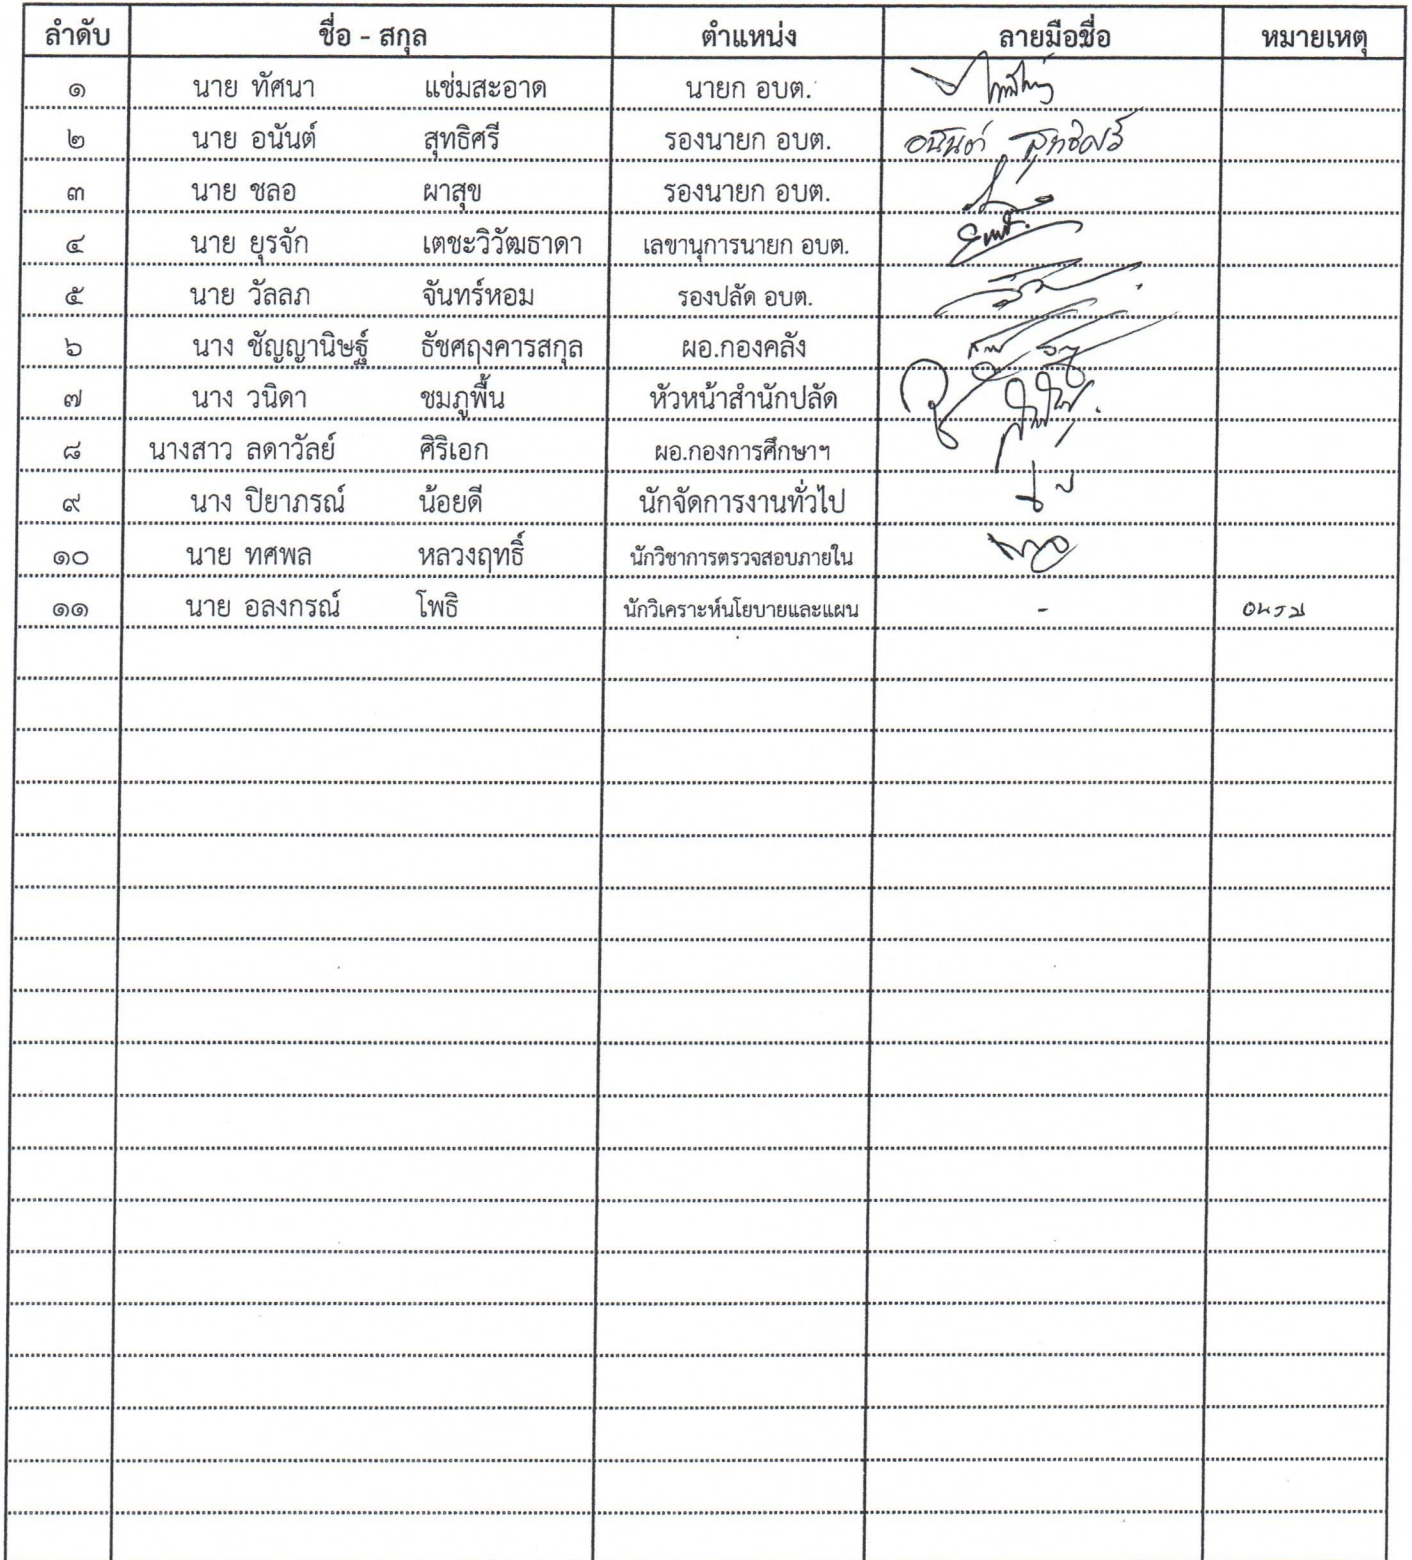 ลำดับ ชื่อ - สกุล ตำแหน่ง ลายมือชื่อ หมายเหตุ
๑ นาย ทัศนา แช่มสะอาด นายก อบต.
๒ นาย อนันต์ สุทธิศรี รองนายก อบต. อนันต์ สุทธิศรี
๓ นาย ชลอ ผาสุข รองนายก อบต.
๔ นาย ยุรจัก เตชะวิวัฒธาดา เลขานุการนายก อบต.
๕ นาย วัลลภ จันทร์หอม รองปลัด อบต.
๖ นาง ชัญญานิษฐ์ ธัชศฤงคารสกุล ผอ.กองคลัง
๗ นาง วนิดา ชมภูพื้น หัวหน้าสำนักปลัด
๘ นางสาว ลดาวัลย์ ศิริเอก ผอ.กองการศึกษาฯ
๙ นาง ปิยาภรณ์ น้อยดี นักจัดการงานทั่วไป
๑๐ นาย ทศพล หลวงฤทธิ์ นักวิชาการตรวจสอบภายใน
๑๑ นาย อลงกรณ์ โพธิ นักวิเคราะห์นโยบายและแผน - อบรม